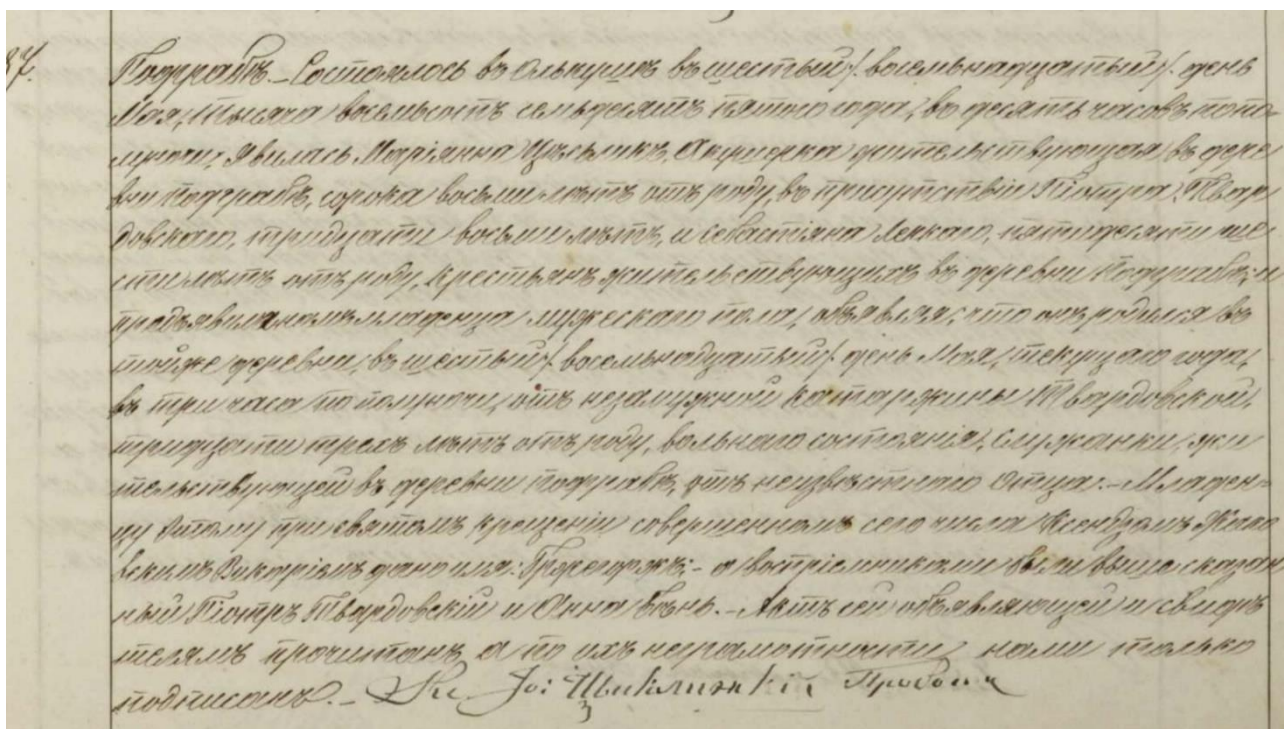 87.
Подграбъ – Состоялось въ Олькушѣ въ шестый /восемьнадцатый/ день
Мая, тысяча восемьсотъ семьдесятъ пятого года, въ десять часовъ попо-
луночи, явилась Маріянна Акушерка жительствующая въ дере
вни Подграбѣ, сорока восьми лѣтъ отъ роду, въ присутствіи Піотра Твар
довскаго, тридцати восьми лѣтъ, и Себастіяна пятидесяти ше
сти лѣтъ отъ роду, крестьянъ жительствующихъ въ деревни Подграбѣ; и
предъявила намъ младенца мужескаго пола, объявляя, что онъ родился въ
тойже деревни, въ шестый /восемьнадцатый/ день Мая, текущаго года,
въ три часа по полуночи, отъ незамужной Катаржины Твардовской,
тридцати трехъ лѣтъ отъ роду, вольнаго состоянія, служанки, жи
тельствующей въ деревни Подграбѣ, отъ неизвѣстнаго Отца. – Младен-
цу этому при святомъ крещеніи совершенномъ сего числа Ксендзомъ
Викаріемъ дано имя: – а воспріемниками были выше сказан
ный Піотръ Твардовскій и Анна – Актъ сей объявляющей и свидѣ
телямъ прочитанъ, а по ихъ неграмотности нами только
подписанъ. –